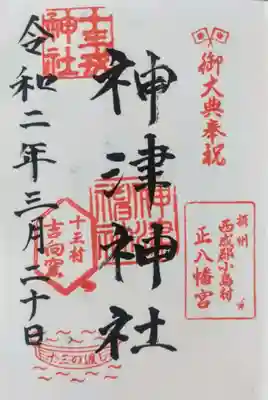 御大典奉祝
摂州
西成郡小島村
正八幡宮
神津神社
十三戎
神社
十三村
吉向窯
十三の渡し
令和二年三月二十日